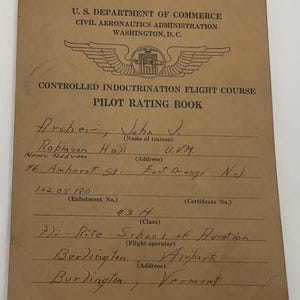 U. S. DEPARTMENT OF COMMERCE
CIVIL AERONAUTICS ADMINISTRATION
WASHINGTON, D. C.
CONTROLLED INDOCTRINATION FLIGHT COURSE
PILOT RATING BOOK
Archer, John J.
(Name of trainee)
Robinson Hall UVM
Home Address (Address)
46 Amherst St. East Orange N.J.
122 05 180
(Enlistment No.) (Certificate No.)
43 H
(Class)
Hi-Rite School of Aviation
(Flight operator)
Burlington Airport
(Address)
Burlington, Vermont